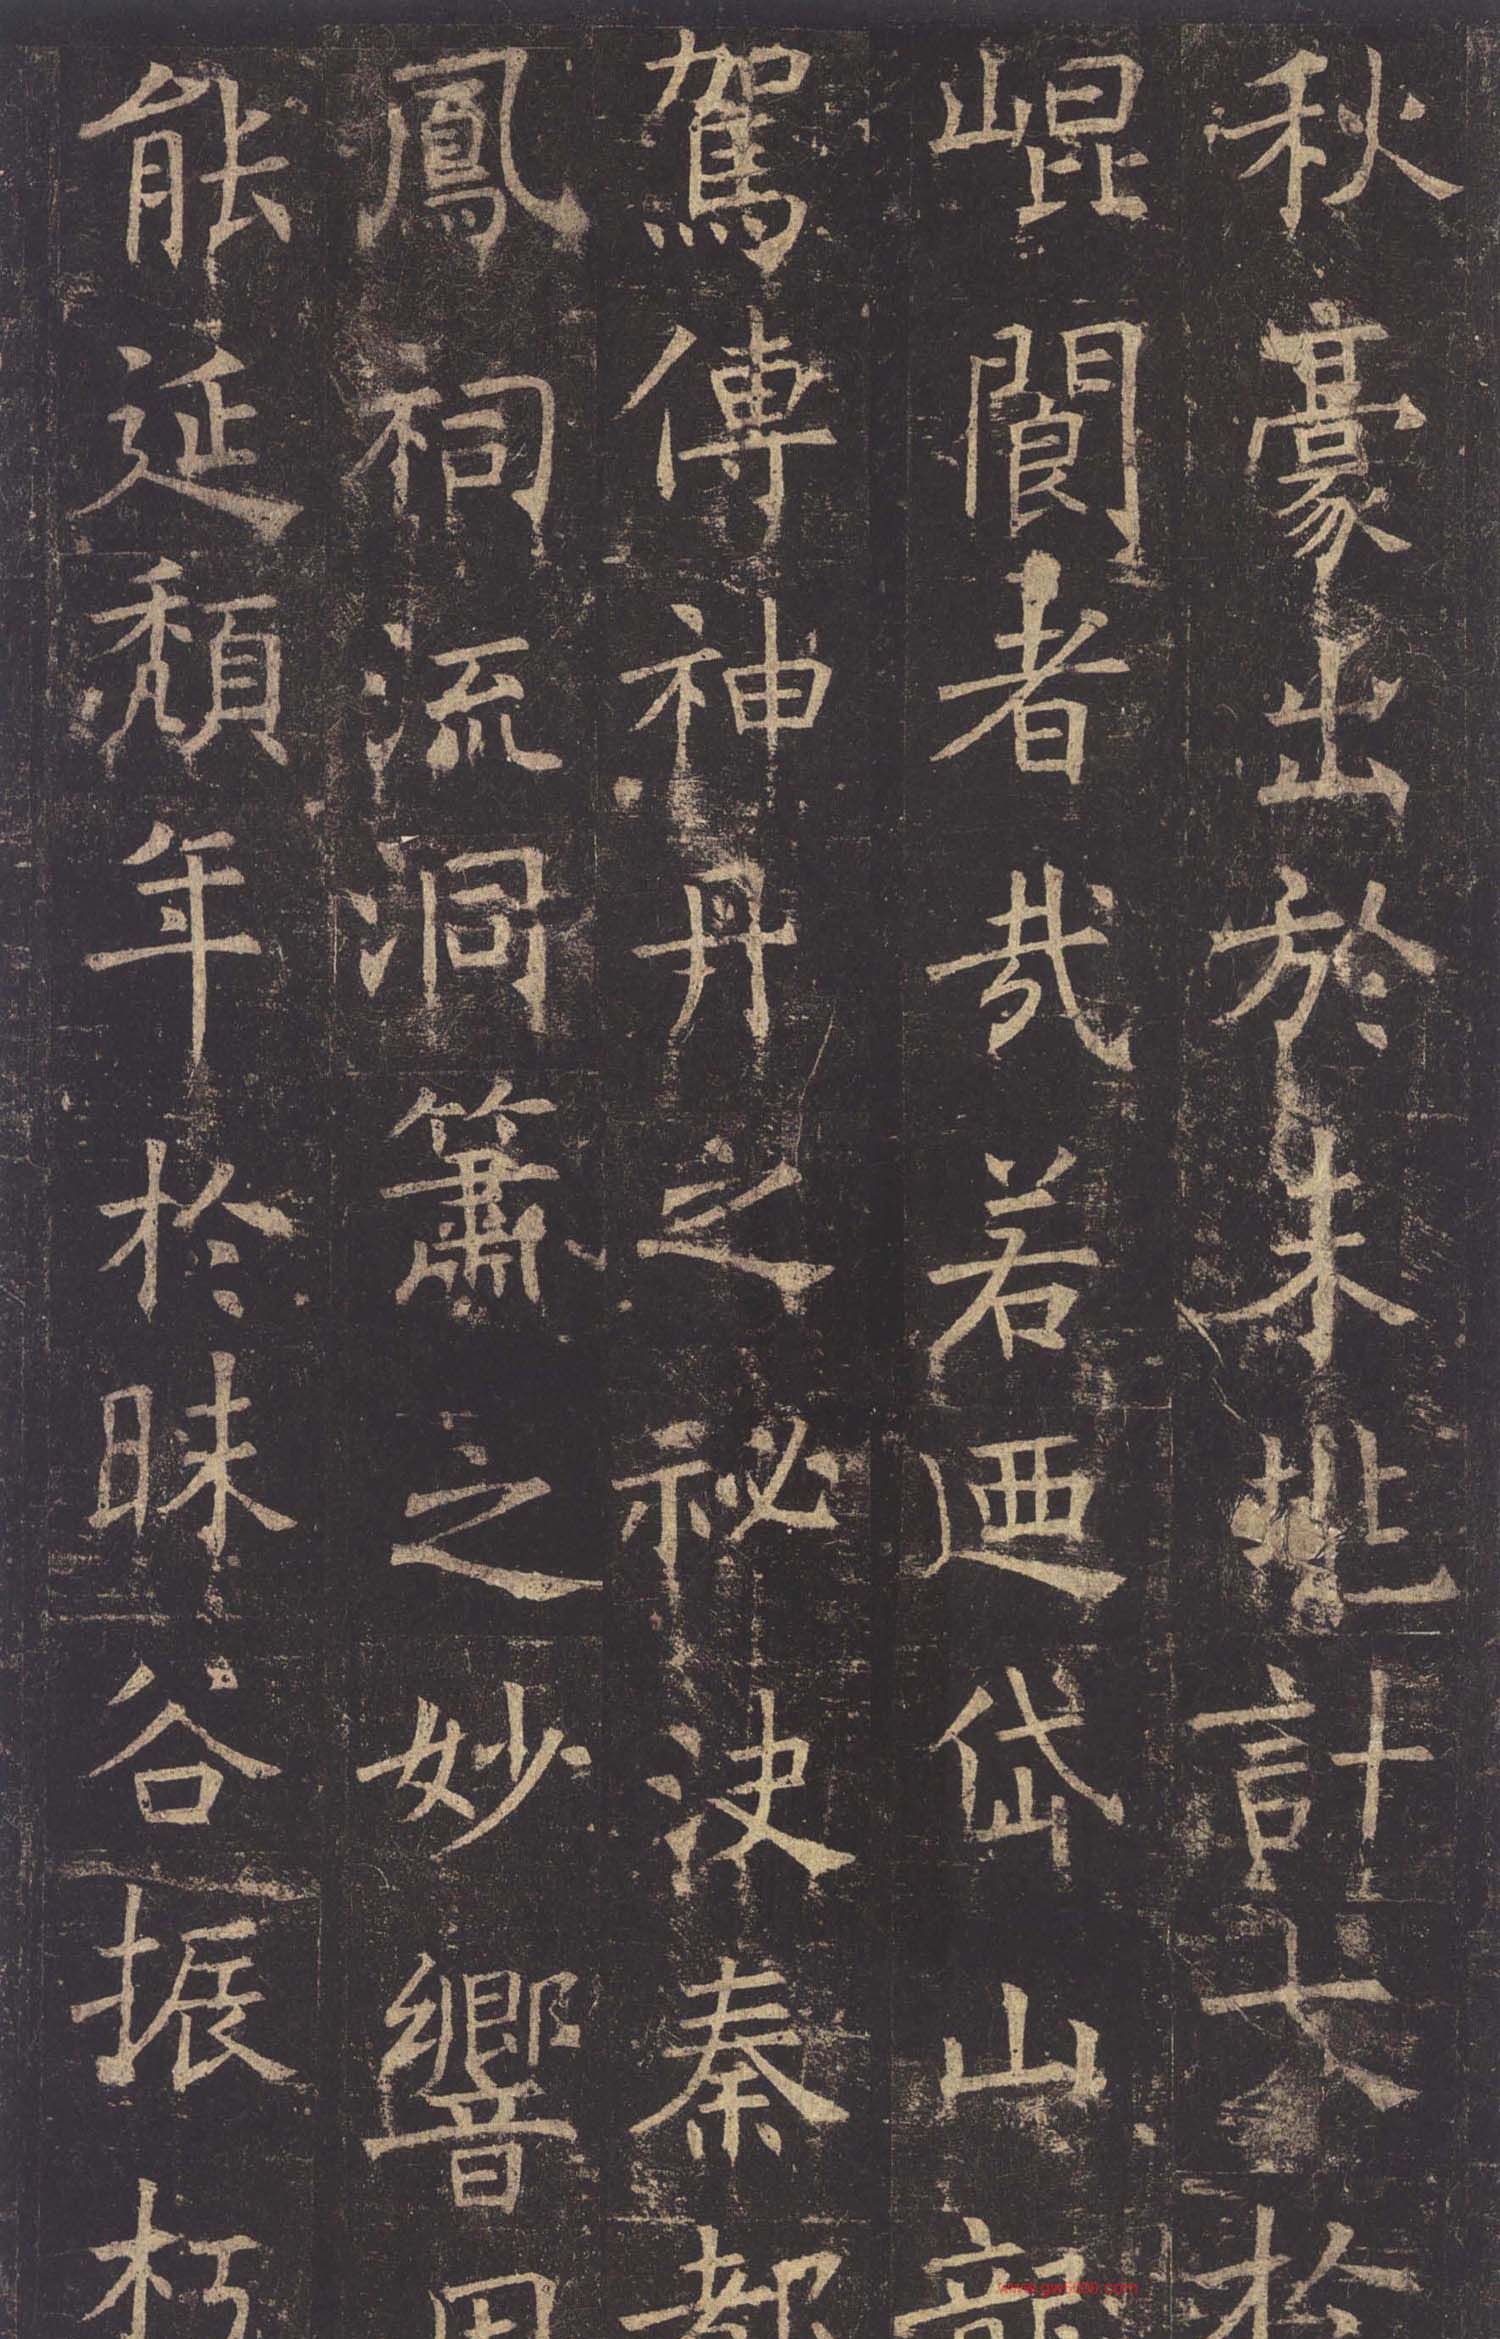 秋豪出於未兆計大於
崐閬者哉若迺岱山龍
駕傳神丹之祕決秦都
鳳祠流洞簫之妙響用
能延頹年於昧谷振朽
www.gw5000.com